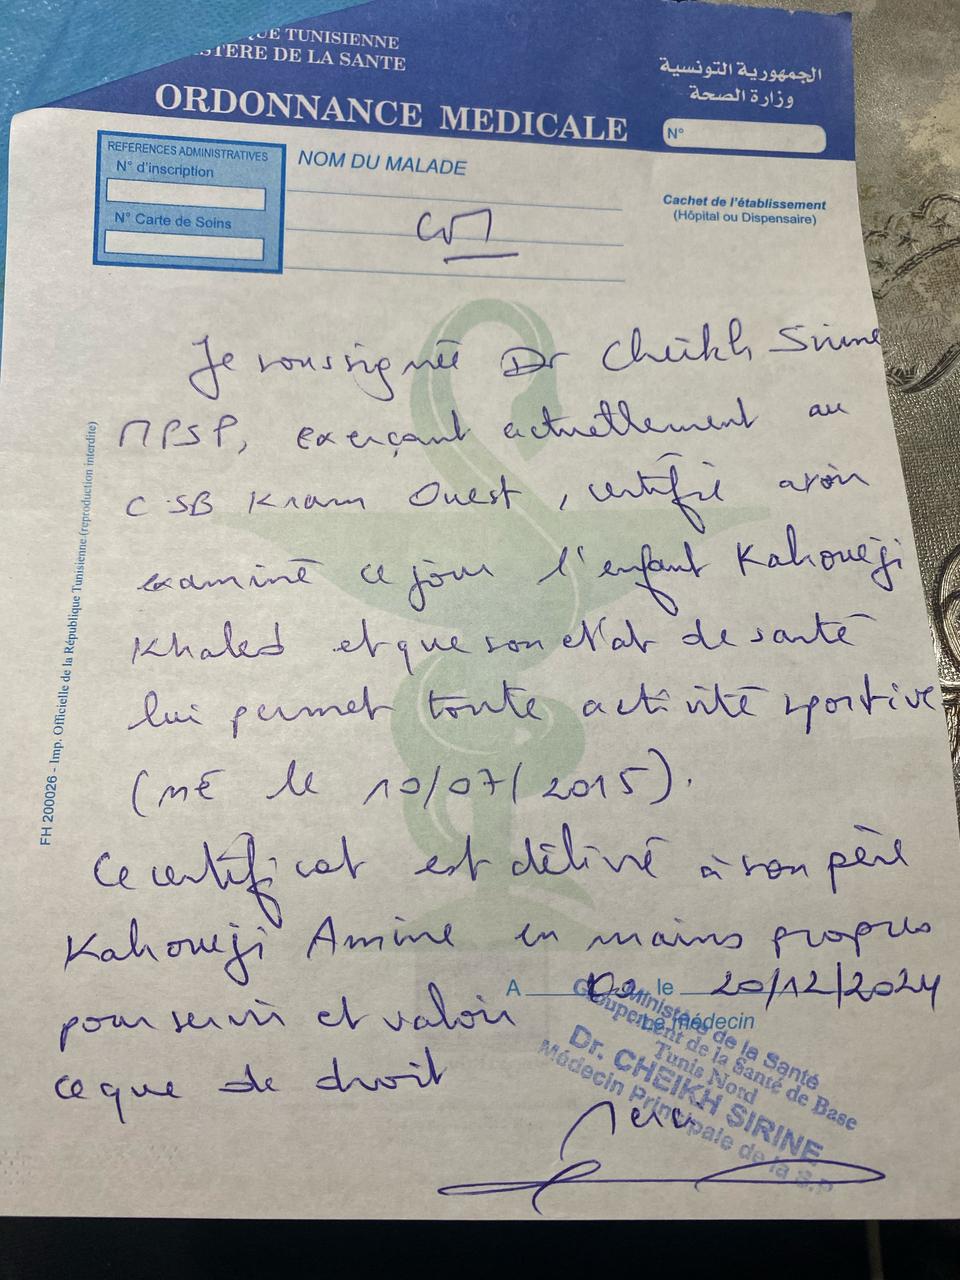 QUE TUNISIENNE
STERE DE LA SANTE
ORDONNANCE MEDICALE
الجمهورية التونسية
وزارة الصحة
N°
REFERENCES ADMINISTRATIVES
N° d'inscription
N° Carte de Soins
NOM DU MALADE
Cachet de l'établissement
(Hôpital ou Dispensaire)
Je soussignée Dr Cheikh Sirine
MPSP, exerçant actuellement au
CSB Kram Ouest, certifie avoir
examiné ce jour l'enfant Kahoueji
Khaled et que son état de santé
lui permet toute activité sportive
(né le 10/07/2015).
Ce certificat est délivré à son père
Kahoueji Amine en mains propres
pour servir et valoir
ce que de droit
A le 20/12/2024
Le médecin
Ministère de la Santé
Groupement de la Santé de Base
Tunis Nord
Dr. CHEIKH SIRINE
Médecin Principale de la S.P
FH 200026 - Imp. Officielle de la République Tunisienne (reproduction interdite)